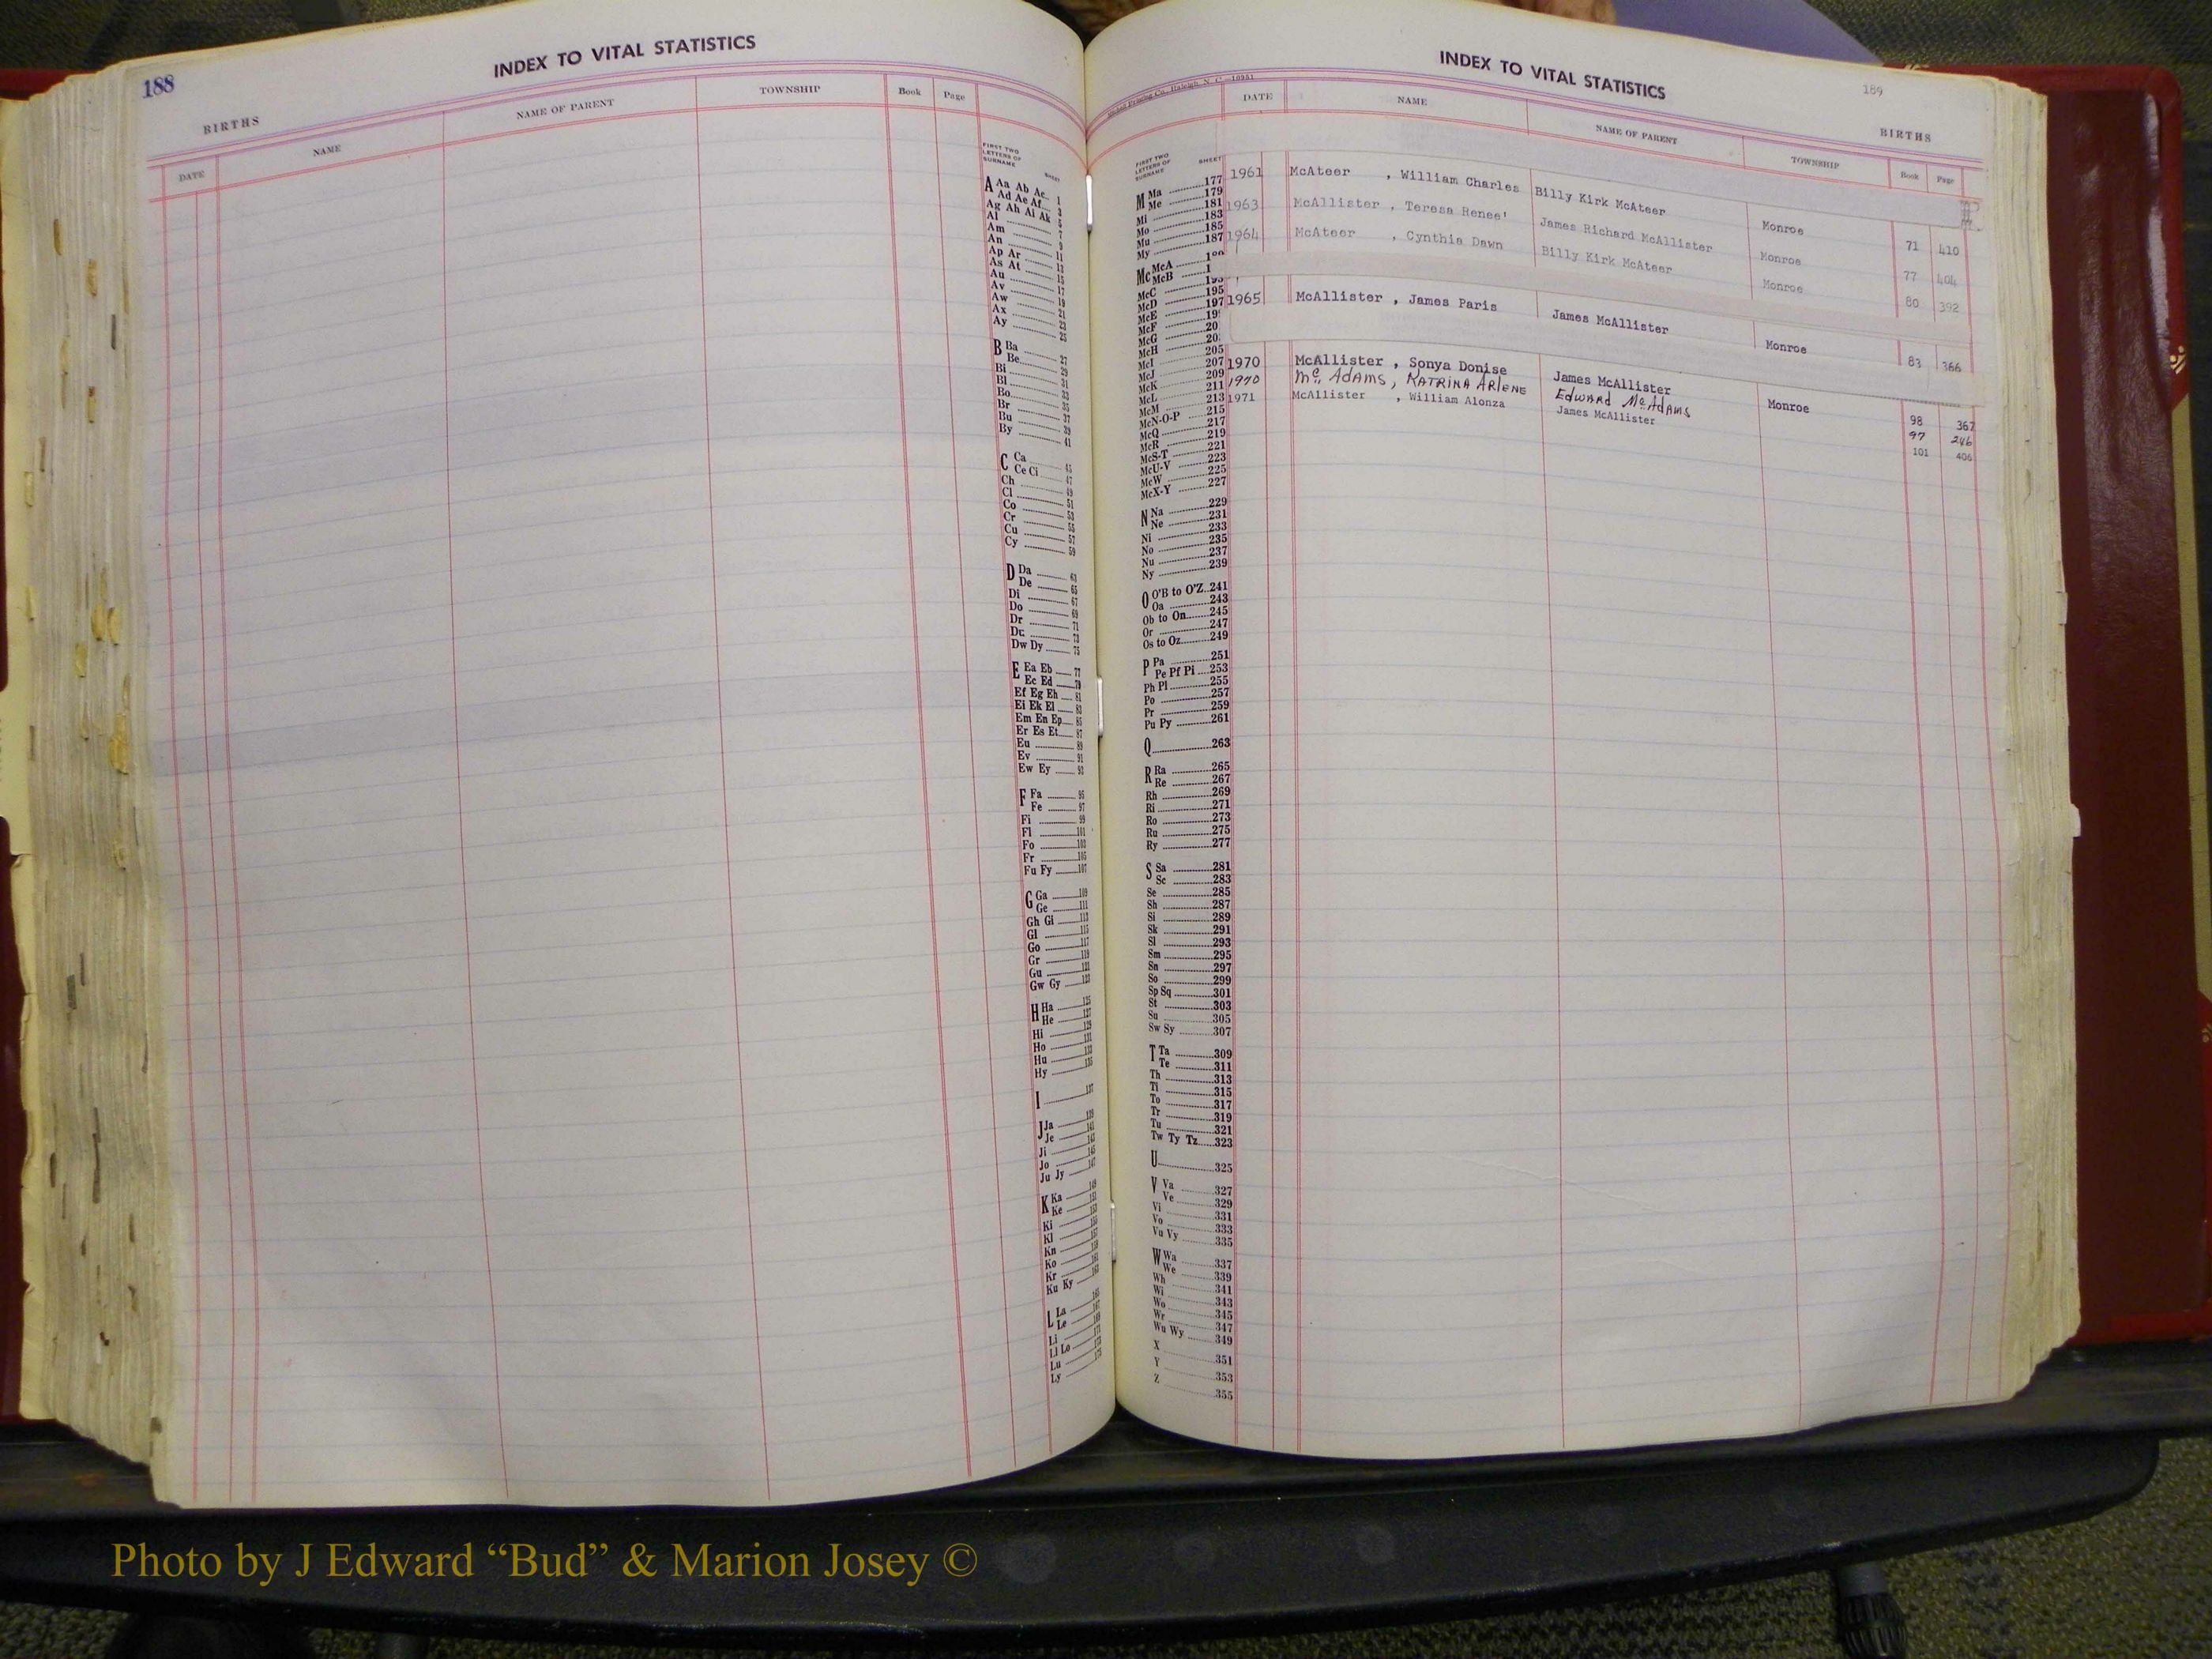 188
INDEX TO VITAL STATISTICS
BIRTHS
DATE NAME NAME OF PARENT TOWNSHIP Book Page
FIRST TWO
LETTERS OF
SURNAME SHEET
A Aa Ab Ac 1
Ad Ae Af 3
Ag Ah Ai Ak 5
Al 7
Am 9
An 11
Ap Ar 13
As At 15
Au 17
Av 19
Aw 21
Ax 23
Ay 25
B Ba 27
Be 29
Bi 31
Bl 33
Bo 35
Br 37
Bu 39
By 41
C Ca 45
Ce Ci 47
Ch 49
Cl 51
Co 53
Cr 55
Cu 57
Cy 59
D Da 63
De 65
Di 67
Do 69
Dr 71
Du 73
Dw Dy 75
E Ea Eb 77
Ec Ed 79
Ef Eg Eh 81
Ei Ek El 83
Em En Ep 85
Er Es Et 87
Eu 89
Ev 91
Ew Ey 93
F Fa 95
Fe 97
Fi 99
Fl 101
Fo 103
Fr 105
Fu Fy 107
G Ga 109
Ge 111
Gh Gi 113
Gl 115
Go 117
Gr 119
Gu 121
Gw Gy 123
H Ha 125
He 127
Hi 129
Ho 131
Hu 133
Hy 135
I 137
J Ja 139
Je 141
Ji 143
Jo 145
Ju Jy 147
K Ka 149
Ke 151
Ki 153
Kl 155
Kn 159
Ko 161
Kr
Ku Ky 163
L La 165
Le 167
Li 169
Ll Lo 171
Lu 173
Ly 175
INDEX TO VITAL STATISTICS
189
BIRTHS
DATE NAME NAME OF PARENT TOWNSHIP Book Page
FIRST TWO
LETTERS OF
SURNAME SHEET
M Ma 177
Me 179
Mi 181
Mo 183
Mu 185
My 187
Mc McA
McB
McC 195
McD 197
McE
McF
McG
McH 205
McI 207
McJ 209
McK 211
McL 213
McM 215
McN-O-P 217
McQ 219
McR 221
McS-T 223
McU-V 225
McW 227
McX-Y
N Na 229
Ne 231
Ni 233
No 235
Nu 237
Ny 239
O O'B to O'Z 241
Oa 243
Ob to On 245
Or 247
Os to Oz 249
P Pa 251
Pe Pf Pi 253
Ph Pl 255
Po 257
Pr 259
Pu Py 261
Q 263
R Ra 265
Re 267
Rh 269
Ri 271
Ro 273
Ru 275
Ry 277
S Sa 281
Sc 283
Se 285
Sh 287
Si 289
Sk 291
Sl 293
Sm 295
Sn 297
So 299
Sp Sq 301
St 303
Su 305
Sw Sy 307
T Ta 309
Te 311
Th 313
Ti 315
To 317
Tr 319
Tu 321
Tw Ty Tz 323
U 325
V Va 327
Ve 329
Vi 331
Vo 333
Vu Vy 335
W Wa 337
We 339
Wh 341
Wi 343
Wo 345
Wr 347
Wu Wy 349
X 351
Y 353
Z 355
1961 McAteer , William Charles Billy Kirk McAteer Monroe 71 410
1963 McAllister , Teresa Renee' James Richard McAllister Monroe 77 404
1964 McAteer , Cynthia Dawn Billy Kirk McAteer Monroe 80 392
1965 McAllister , James Paris James McAllister Monroe 83 366
1970 McAllister , Sonya Donise James McAllister Monroe 98 367
1970 Mc Adams, Katrina Arlene Edward McAdams 97 246
1971 McAllister , William Alonza James McAllister 101 406
Photo by J Edward “Bud” & Marion Josey ©